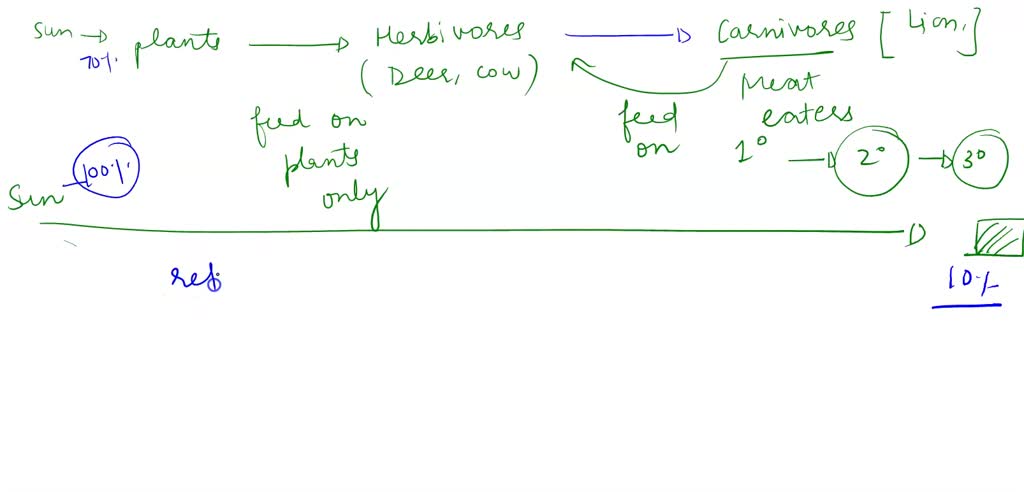 Sun → plants → Herbivores → Carnivores [Lion,]
70%
(Deer, cow)
meat
eaters
feed on
plants
only
feed
on
1° → 2° → 3°
100%
Sun
10%